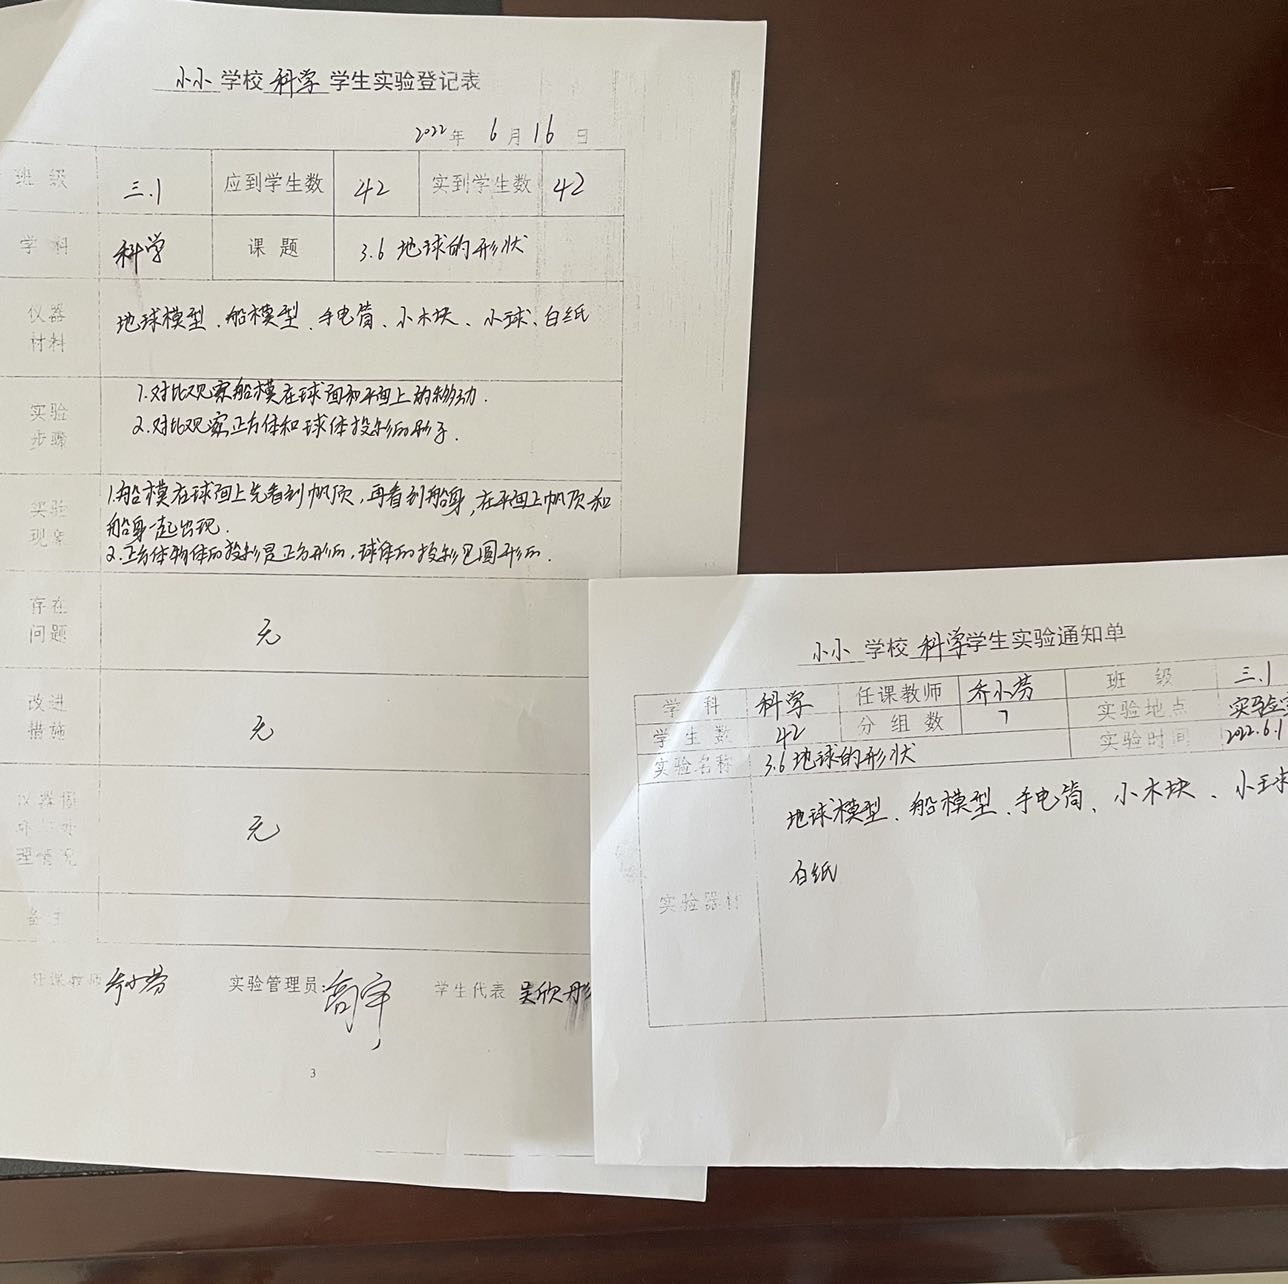 小小 学校 科学 学生实验登记表
2022 年 6 月 16 日
班级 三.1 应到学生数 42 实到学生数 42
学科 科学 课题 3.6 地球的形状
仪器
材料
地球模型、船模型、手电筒、小木块、小球、白纸
实验
步骤
1.对比观察船模在球面和平面上的移动.
2.对比观察正方体和球体投影的影子.
实验
现象
1.船模在球面上先看到帆顶,再看到船身,在平面上帆顶和
船身一起出现.
2.正方体物体的投影是正方形的,球体的投影是圆形的.
存在
问题
无
改进
措施
无
仪器损
坏与处
理情况
无
备注
任课教师 乔小芬 实验管理员: 学生代表 吴欣彤
3
小小 学校 科学学生实验通知单
学科 科学 任课教师 乔小芬 班级 三.1
学生数 42 分组数 7 实验地点 实验室
实验名称 3.6 地球的形状 实验时间 2022.6.1
实验器材
地球模型、船模型、手电筒、小木块、小球
白纸